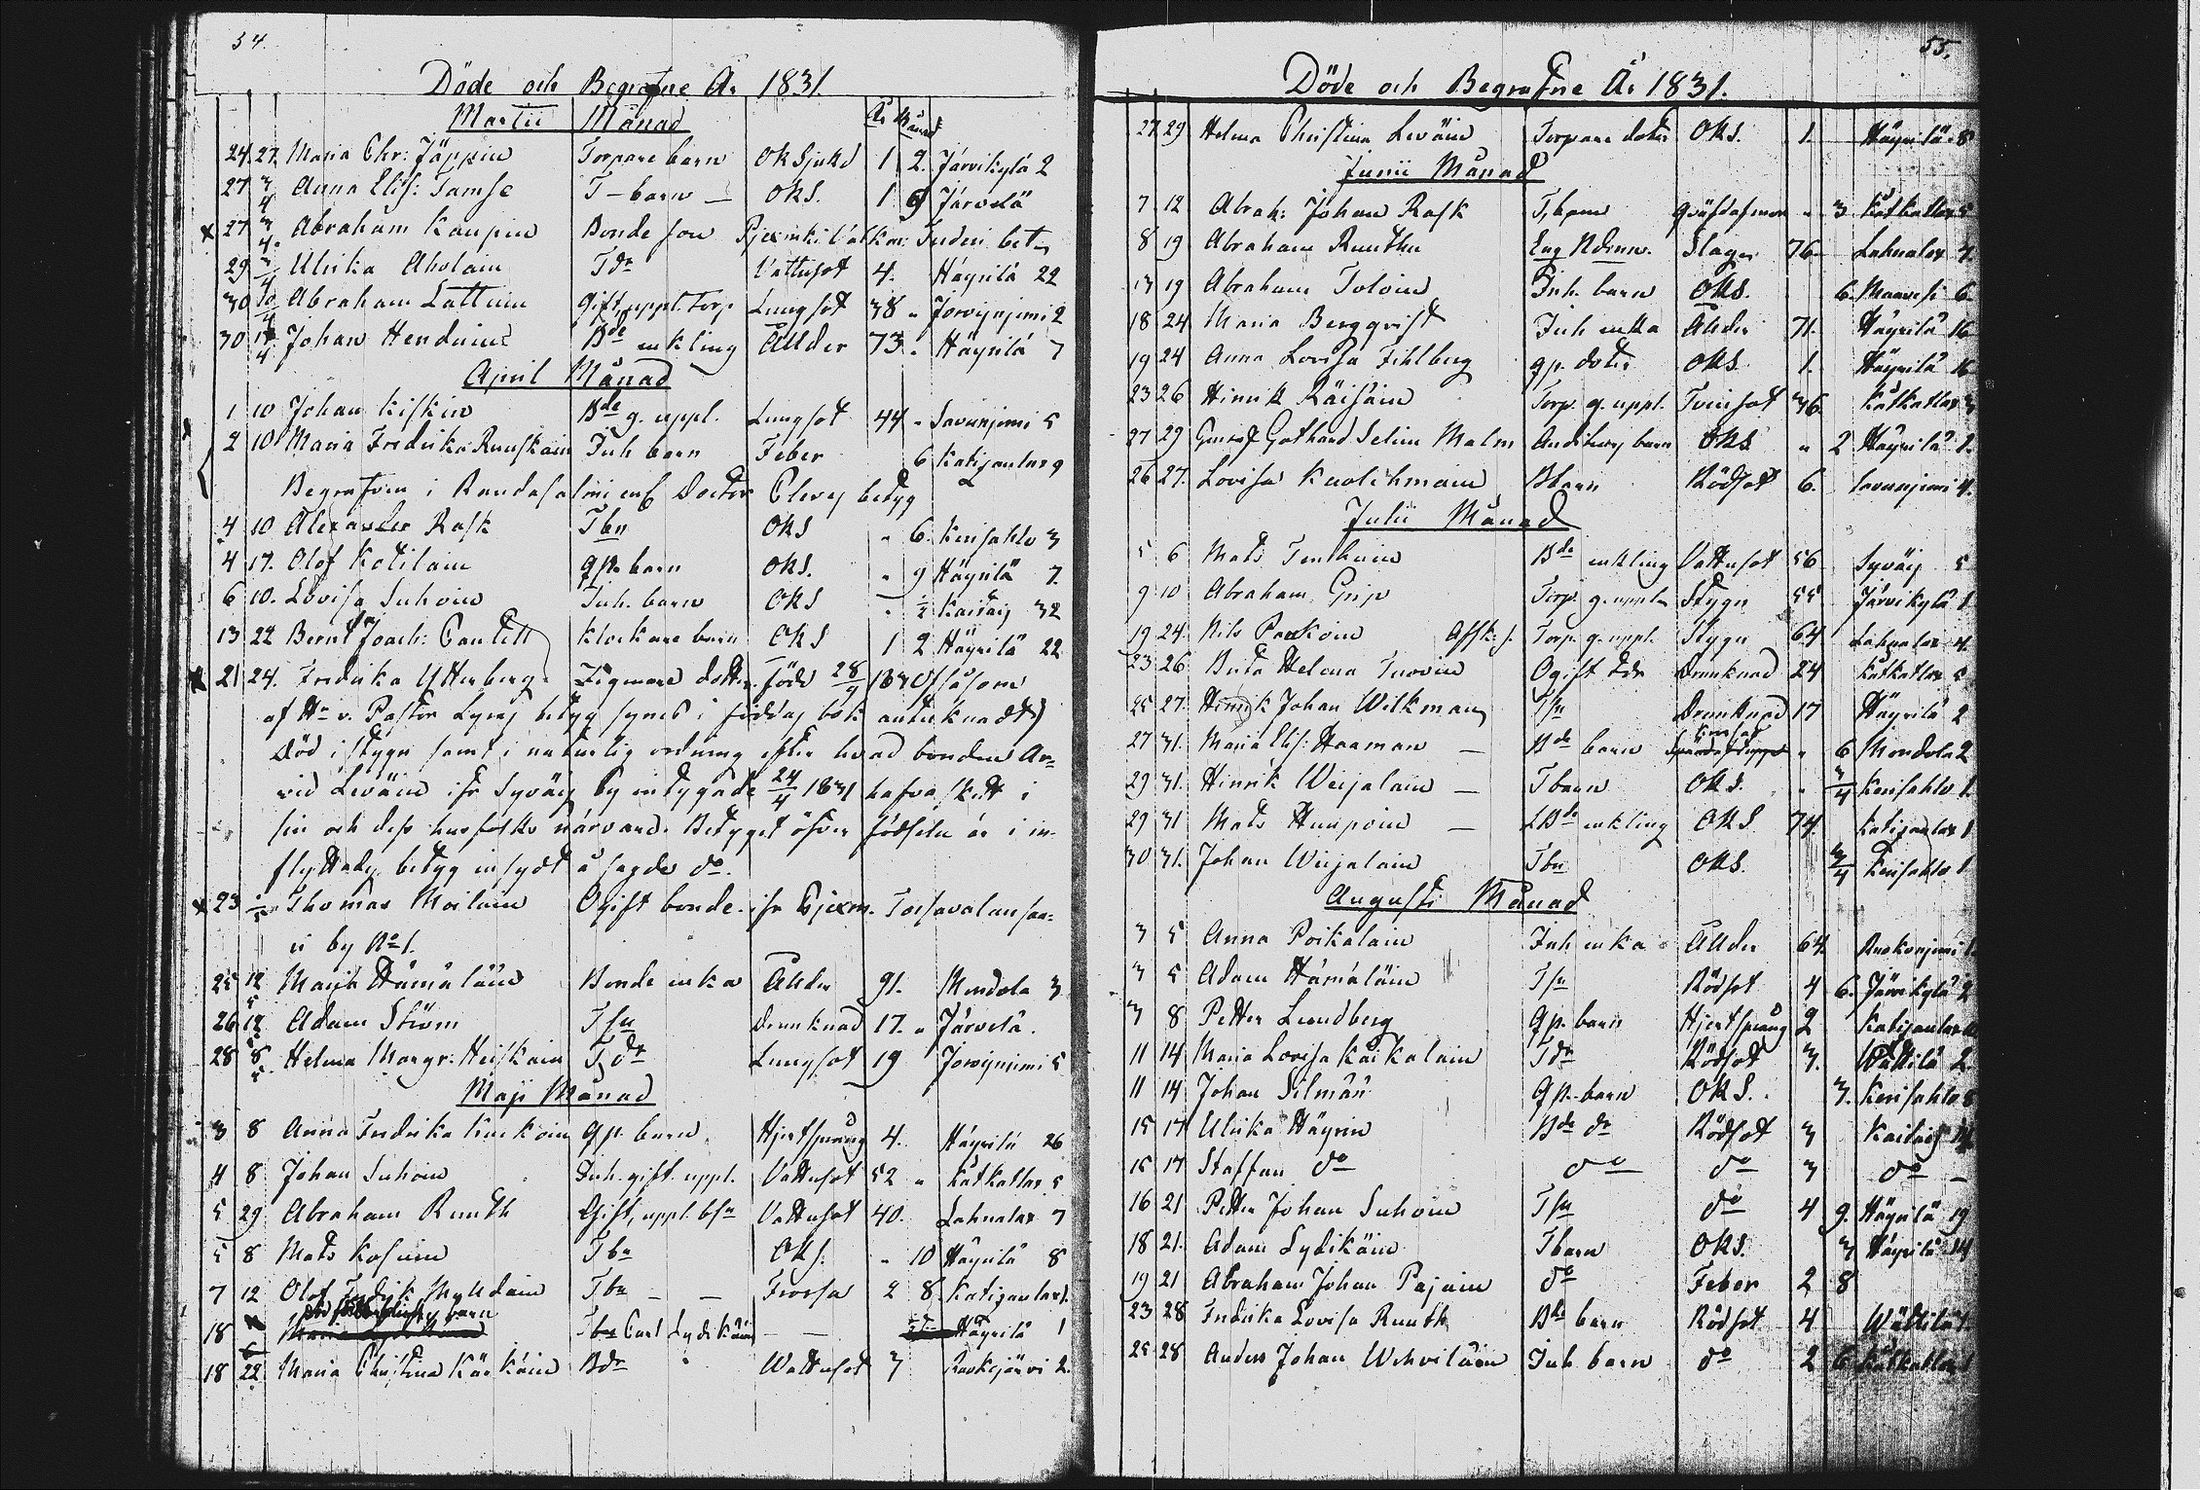 54.
Döde och Begrafne År 1831
Martii Månad
År Månad
24 27. Maria Chr: Jäppin Torpare barn Ok Sjukd 1 2. Järvikylä 2
27 3/4 Anna Elis: Tamse T-barn Oks. 1 9 Järvelä
x 27 3/4. Abraham Kaupin Bonde son
29 3/4 Ulrika Aholain Tdr Vattusot 4. Häyrilä 22
30 10/4 Abraham Lattuin gift, uppl. Torp Lungsot 38 " Jorvijnjemi 2
30 17/4 Johan Henduin Bde enkling Ållder 73 " Häyrilä 7
April Månad
1 10 Johan Kiskin Bde g. uppl. Lungsot 44 " Savunjemi 5
2 10 Maria Fredrika Ruuskain Inh barn Feber 6 Katizanlax 9
Begrafven i Randasalmi enl Doctor Cleves betyg
4 10 Alexander Rask Tbn Oks " 6. Kerisahlo 3
4 17. Olof Kotilain gp. barn Oks. " 9 Häyrilä 7.
6 10. Lovisa Suhoin Inh. barn Oks " 1/2 Kaitais 32
13 22 Bernt Joach: Cantell Klockare barn Oks 1 2 Häyrilä 22
x 21 24. Fredrika Utterberg dotter, föde 28/9 1830 (såsom
af Hr v. Pastor betyg synes i födda bok antecknadt)
Död i stygn samt i naturlig ordning efter hvad bonden Ar=
vid Leväin ifr Syväis by intygade 24/4 1831 hafva skett i
sin och dess husfolks närvaro. Betyget öfver födseln är i in-
flyttades betyg insydt å sagde do.
x 23 Thomas Moilain Ogift bonde ifr
i by No 1.
25 12/5 Marih Hämäläin Bonde enka Ållder 91. Mondola 3
26 12/5 Adam Ström Tsn Drunknad 17. " Järvelä.
28 8/5. Helena Margr: Heiskain Tdr Lungsot 19 Jorvijnjemi 5
Maji Månad
3 8 Anna Fredrika gp. barn Hjertsprång 4. Häyrilä 26
4 8 Johan Suhoin Inh. gift uppl. Vattusot 52 " Kätkatlax 5
5 29 Abraham Ruuth Gift, uppl. bsn Vattusot 40. Lahnalax 7
5 8 Mats Kosuin Tbn Oks. " 10 Häyrilä 8
7 12 Olof Fredrik Tbn — — Frossa 2 8. Katizanlax 1.
18 barn Tbn Carl Lydikäin — — Häyrilä 1
18 22 Maria Christina Kärkäin Bdr Wattusot 3 Ruokojärvi 2.
55.
Döde och Begrafne År 1831.
27 29 Helena Christina Leväin Torpare dotter Oks. 1. Häyrilä 8
Junii Månad
7 12 Abrah: Johan Rask T, barn " 3 Kätkatlax 5
8 19 Abraham Ruuthu Slag 76. Lahnalax 7.
13 19 Abraham Toloin Inh. barn Oks. 6. Maavesi 6.
18 24 Maria Bergqvist Inh enka Ållder 71. Häyrilä 16
19 24 Anna Lovisa Fihlberg gp. dotter Oks 1. Häyrilä 16
23 26 Hinrik Räisäin Torp. g. uppl. Tvinsot 36. Kätkatlax 3
27 29 Gustaf Gothard Selim Malm barn Oks " 2 Häyrilä 1.
26 27. Lovisa Kuolihmain Bbarn Rödsot 6. Savunjemi 4.
Julii Månad
5 6 Mats Tenhuin Bde enkling Vattusot 56 Syväis 5
9 10 Abraham Grip Torp g. uppl. Stygn 55 Järvikylä 1
19 24. Nils Parkoin Afsk. s. Torp g. uppl. Stygn 64 Lahnalax 4.
23 26 Brita Helena Tuovin Ogift Tdr Drunknad 24 Kätkatlax 5
25 27. Hinrik Johan Wilkman Tsn Drunknad 17 Häyrilä 2
27 31. Maria Elis: Haaman — Bde barn " 6 Mondola 2
29 31. Hinrik Weijalain — T barn Oks. " 3/4 Kerisahlo 1.
29 31 Mats Huupoin — enkling Oks. 74. Katizanlax 1
30 31. Johan Weijalain Tbn Oks. 3/4 Kerisahlo 1
Augusti Månad
3 5 Anna Poikalain Inh enka Ållder 64. Ruokonjemi 1.
3 5 Adam Hämäläin Tsn Rödsot 4 6. Järvikylä 2
3 8 Petter Lundberg gp. barn Hjertsprång 2 Katizanlax
11 14 Maria Lovisa Kaikalain Tdr Rödsot 3. Wättilä 2.
11 14 Johan Silmän gp. barn Oks. 3. Kerisahlo 8
15 17 Ulrika Häyrin Bde dr Rödsot 3 Kaitais 14
15 17 Staffan do do do 3 do —
16 21 Petter Johan Suhoin Tsn do 4 9. Häyrilä 19
18 21. Adam Lydikäin Tbarn Oks. 3 Häyrilä 14
19 21 Abraham Johan Pajain do Feber 2 8
23 28 Fredrika Lovisa Ruuth Bde barn Rödsot 4 Wättilä 1.
25 28 Anders Johan Wehviläin Inh barn do 2 6 Kätkatlax 1